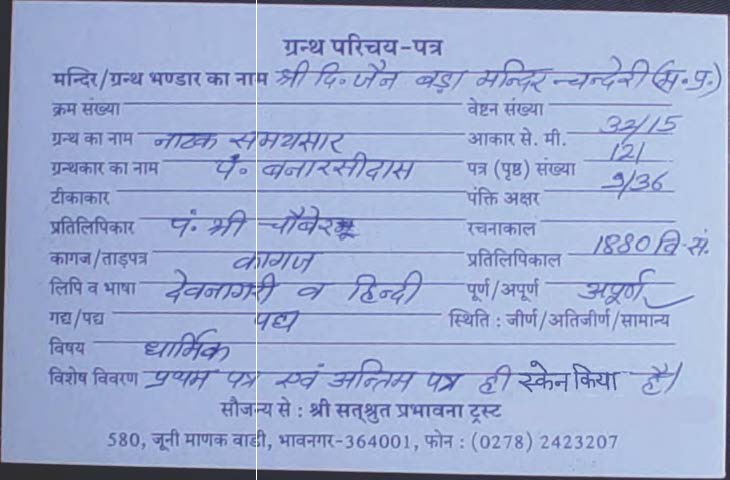 ग्रन्थ परिचय-पत्र
मन्दिर/ग्रन्थ भण्डार का नाम श्री दि. जैन बड़ा मन्दिर चन्देरी (म.प्र.)
क्रम संख्या वेष्टन संख्या
ग्रन्थ का नाम नाटक समयसार आकार से. मी. 32/15
ग्रन्थकार का नाम पं. बनारसीदास पत्र (पृष्ठ) संख्या 121
टीकाकार पंक्ति अक्षर 9/36
प्रतिलिपिकार पं. श्री रचनाकाल
कागज/ताड़पत्र कागज प्रतिलिपिकाल 1880 वि. सं.
लिपि व भाषा देवनागरी व हिन्दी पूर्ण/अपूर्ण अपूर्ण
गद्य/पद्य पद्य स्थिति : जीर्ण/अतिजीर्ण/सामान्य
विषय धार्मिक
विशेष विवरण प्रथम पत्र एवं अन्तिम पत्र ही स्केन किया है।
सौजन्य से : श्री सत्श्रुत प्रभावना ट्रस्ट
580, जूनी माणक वाडी, भावनगर-364001, फोन : (0278) 2423207